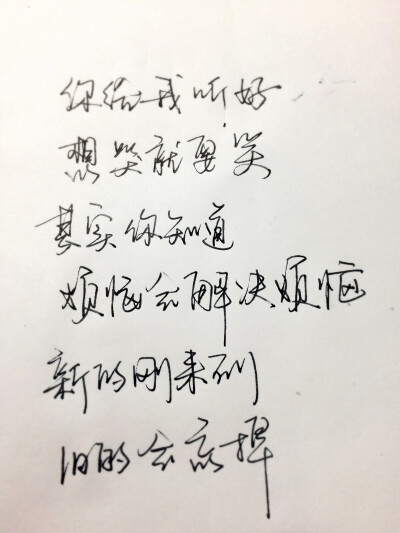 你给我听好
想哭就要笑
其实你知道
烦恼会解决烦恼
新的刚来到
旧的会忘掉